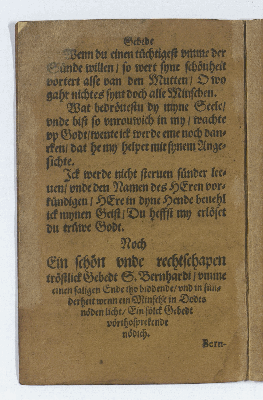 Gebede
Wenn du einen tüchtigest vmme der
Sünde willen / so wert syne schönheit
vortert alse van den Mutten / O wo
gahr nichtes synt doch alle Minschen.
Wat bedröuestu dy myne Seele /
vnde bist so vnrouwich in my / wachte
vp Godt / wente ick werde eme noch dan-
cken / dat he my helpet mit synem Ange-
sichte.
Ick werde nicht steruen sünder leu-
uen / vnde den Namen des HEren vor-
kündigen / HEre in dyne Hende beuehl
ick mynen Geist / Du heffst my erlöset
du trüwe Godt.
Noch
Ein schön vnde rechtschapen
tröstlick Gebedt S. Bernhardi / vmme
einen saligen Ende tho biddende / vnd in sun-
derheit wenn ein Minsche in Dodes
nöden licht / Ein sölck Gebedt
vörthosprekende
nödich.
Bern-